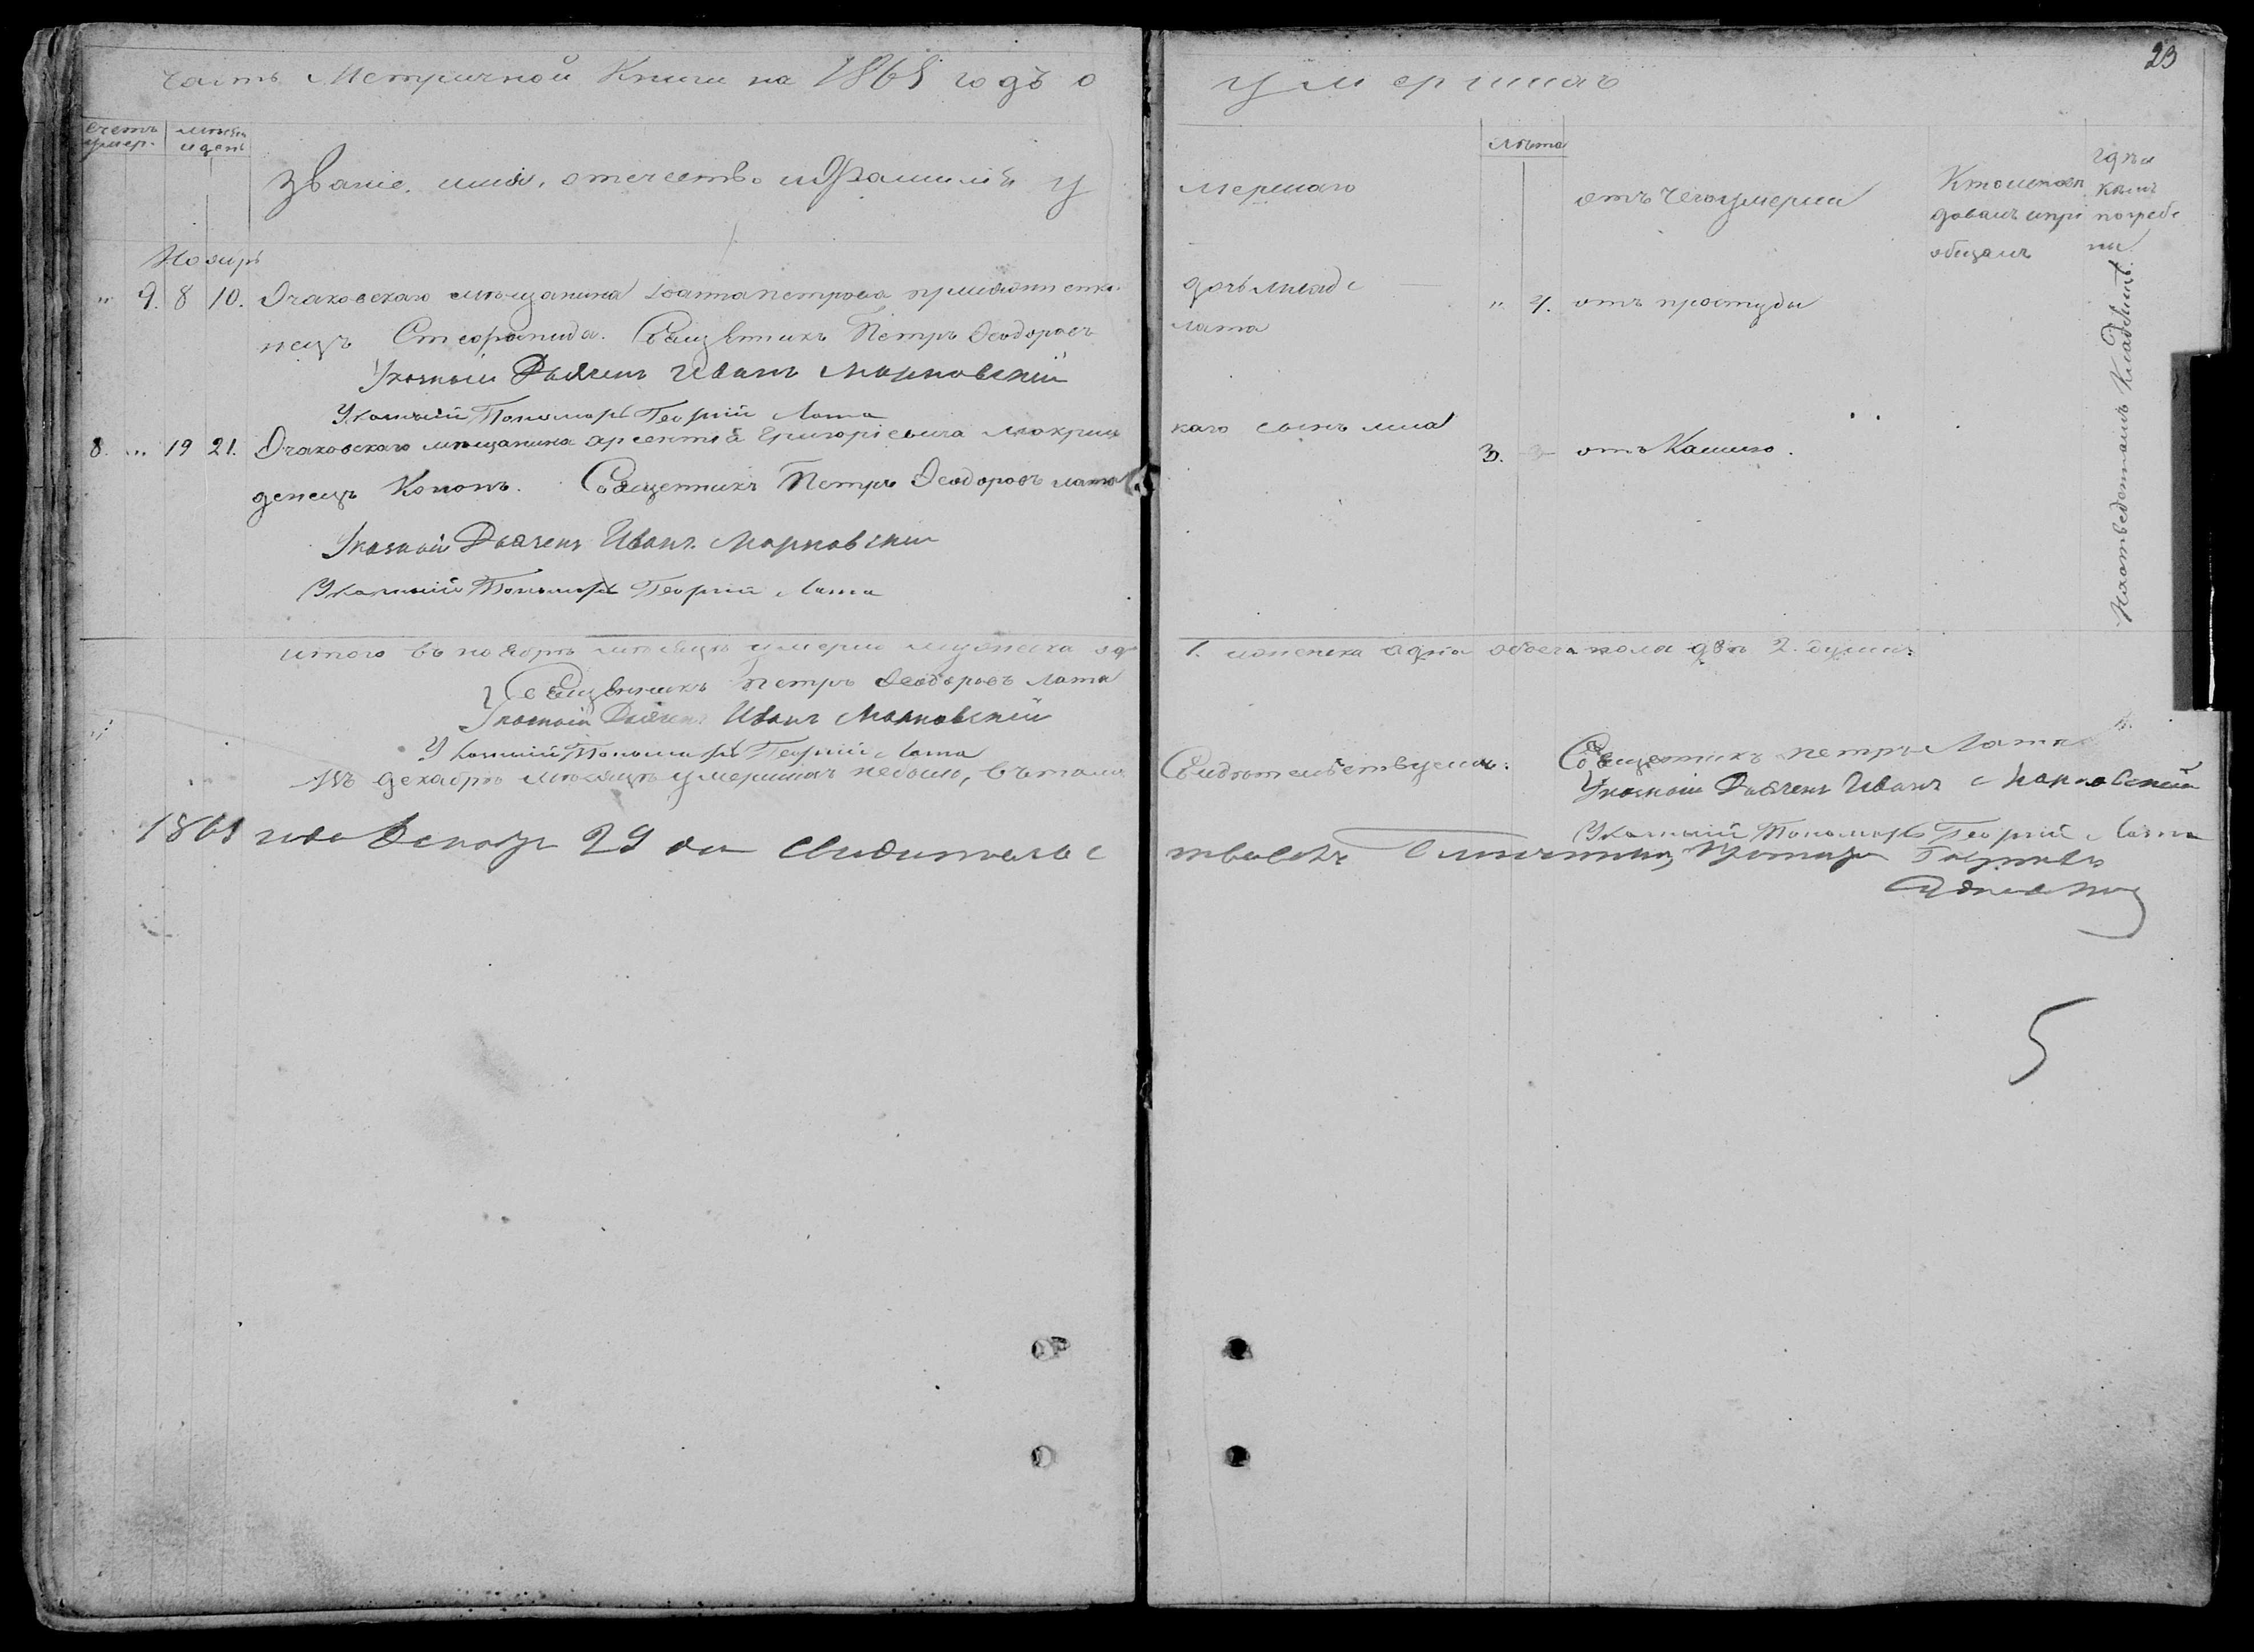 23
часть Метричной Книги на 1865 годъ о умершихъ
счетъ умер.
мѣсяц и день
званіе, имя, отечество и фамилія умершаго
лѣта
отъ чего умерли
Кто исповѣдовалъ и пріобщалъ
гдѣ и кѣмъ погребены
Ноябрь
" 9. 8 10. Очаковскаго мѣщанина Іоанна Петрова дочь младе " 4. отъ простуды
нецъ Стефанида. Священникъ Петръ Феодоровъ Лата
Указный Дьячекъ Иванъ Марковскій
Указный Пономарь Георгій Лата
8. " 19 21. Очаковскаго мѣщанина Арсентія Григоріевича Мокриц каго сынъ мла 3. отъ Кашлю.
денецъ Кононъ. Священникъ Петръ Феодоровъ Лата
Указный Дьячекъ Иванъ Марковскій
Указный Пономарь Георгій Лата
На отведенномъ Кладбищѣ.
итого въ ноябрѣ мѣсяцѣ умерло мужеска од 1. женска одна обоего пола двѣ 2. души.
Священникъ Петръ Феодоровъ Лата
Указный Дьячекъ Иванъ Марковскій
Указный Пономарь Георгій Лата
Въ декабрѣ мѣсяцѣ умершихъ небыло, въ томъ Свидѣтельствуемъ: Священникъ Петръ Лата
Указный Дьячекъ Иванъ Марковскій
Указный Пономарь Георгій Лата
1865 года Декабр 29 дня Свидѣтельс твовалъ
5